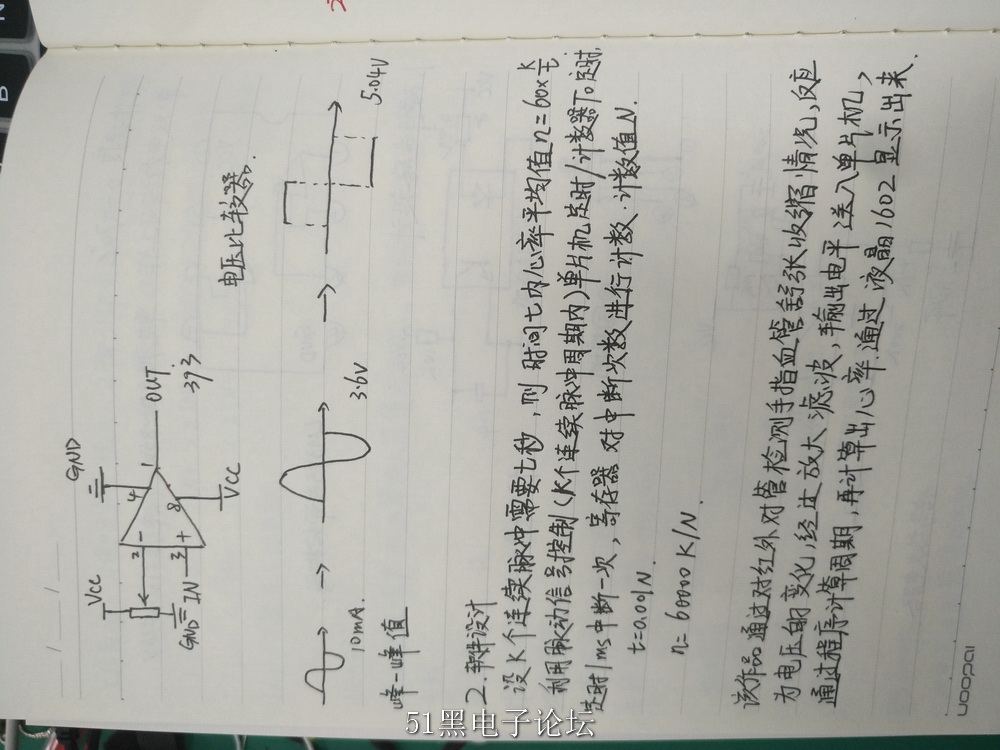 VCC
GND
2
-
4
1
OUT
393
IN
3
+
8
GND
VCC
电压比较器.
10mA.
峰-峰值
3.6V
5.04V
2.软件设计
设K个连续脉冲需要t秒,则时间t内心率平均值n=60×K/t
利用脉动信号控制(K个连续脉冲周期内)单片机定时/计数器T0定时,
定时1ms中断一次,寄存器对中断次数进行计数.计数值N.
t=0.001N.
n=60000K/N.
该作品通过对红外对管检测手指血管舒张收缩情况,反应
为电压的变化,经过放大滤波,输出电平送入单片机,
通过程序计算周期,再计算出心率.通过液晶1602显示出来.
uoopai
51黑电子论坛
B